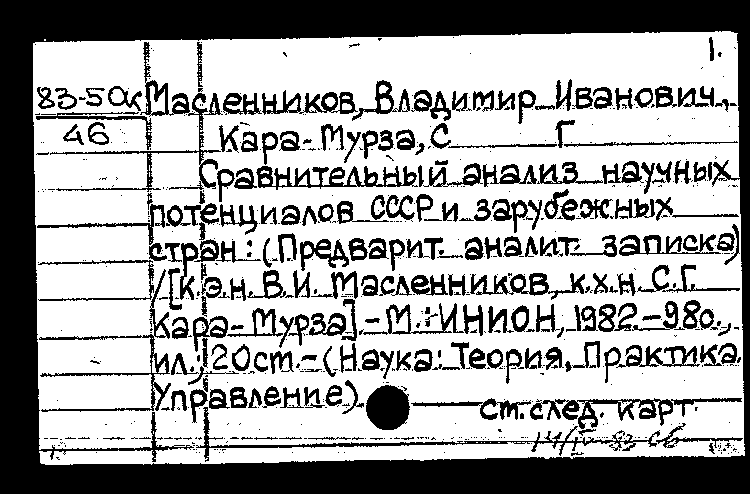 1.
83-5Ок Масленников, Владимир Иванович,
46 Кара-Мурза, С Г
Сравнительный анализ научных
потенциалов СССР и зарубежных
стран: (Предварит. аналит. записка)
/[К.э.н. В.И. Масленников, к.х.н. С.Г.
Кара-Мурза]. - М.: ИНИОН, 1982. - 98с.,
ил.; 20ст. - (Наука: Теория, Практика
Управление)
см. след. карт.
14/IV-83 сб